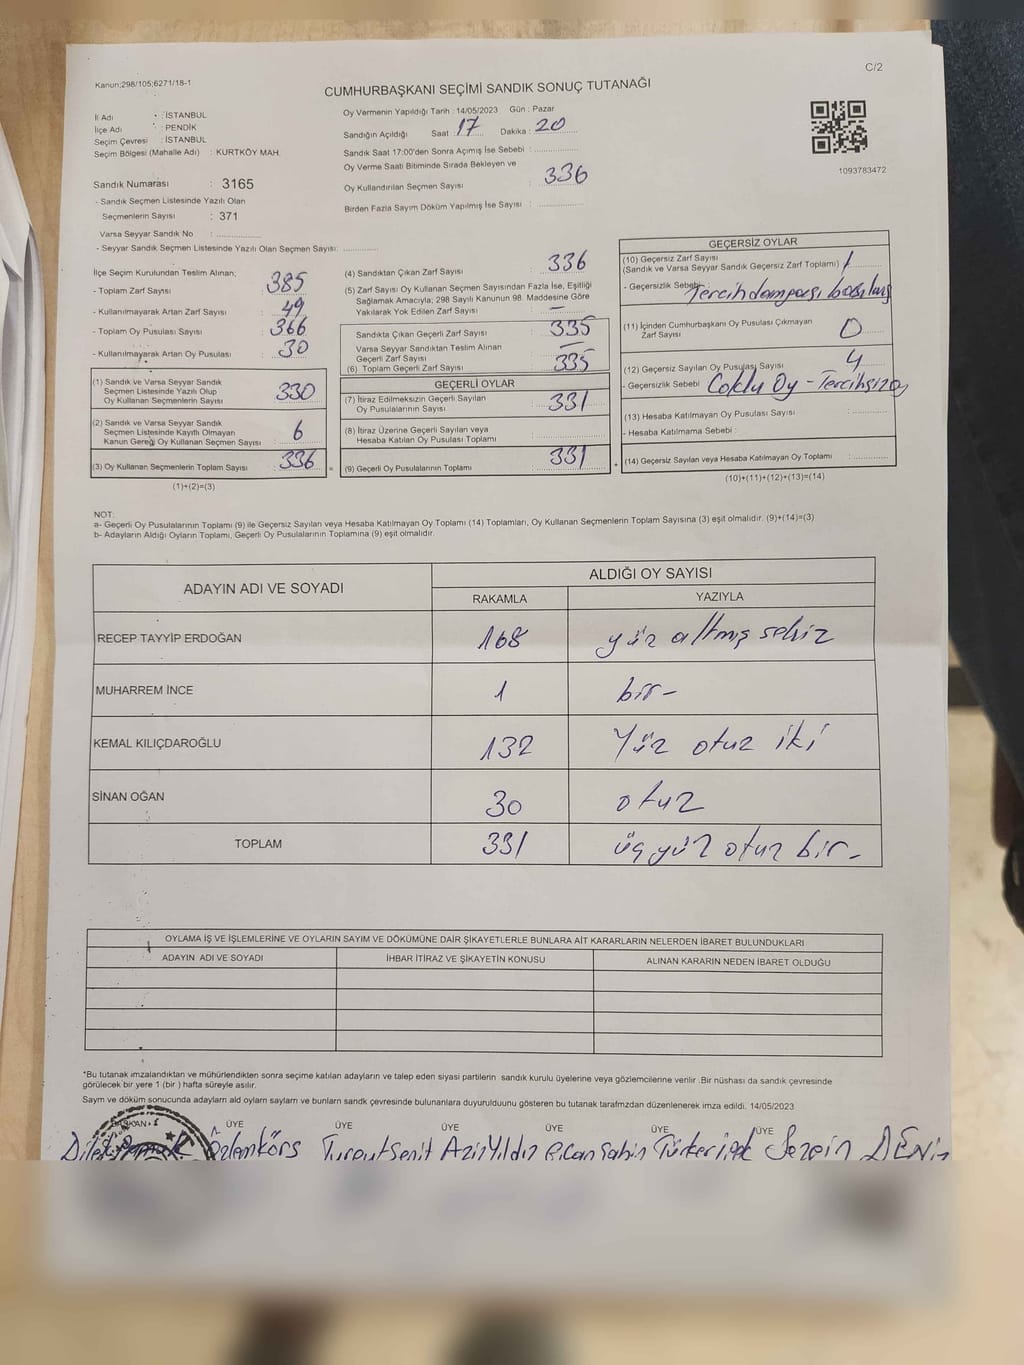 C/2
Kanun;298/105;6271/18-1
CUMHURBAŞKANI SEÇİMİ SANDIK SONUÇ TUTANAĞI
İl Adı : İSTANBUL
İlçe Adı : PENDİK
Seçim Çevresi : İSTANBUL
Seçim Bölgesi (Mahalle Adı) : KURTKÖY MAH.
Sandık Numarası : 3165
- Sandık Seçmen Listesinde Yazılı Olan
Seçmenlerin Sayısı : 371
Varsa Seyyar Sandık No :
- Seyyar Sandık Seçmen Listesinde Yazılı Olan Seçmen Sayısı:
Oy Vermenin Yapıldığı Tarih : 14/05/2023 Gün : Pazar
Sandığın Açıldığı Saat 17 Dakika : 20
Sandık Saat 17:00'den Sonra Açımış İse Sebebi :
Oy Verme Saati Bitiminde Sırada Bekleyen ve
Oy Kullandırılan Seçmen Sayısı : 336
Birden Fazla Sayım Döküm Yapılmış İse Sayısı :
1093783472
İlçe Seçim Kurulundan Teslim Alınan;
- Toplam Zarf Sayısı : 385
- Kullanılmayarak Artan Zarf Sayısı : 49
- Toplam Oy Pusulası Sayısı : 366
- Kullanılmayarak Artan Oy Pusulası : 30
(1) Sandık ve Varsa Seyyar Sandık
Seçmen Listesinde Yazılı Olup
Oy Kullanan Seçmenlerin Sayısı : 330
(2) Sandık ve Varsa Seyyar Sandık
Seçmen Listesinde Kayıtlı Olmayan
Kanun Gereği Oy Kullanan Seçmen Sayısı : 6
(3) Oy Kullanan Seçmenlerin Toplam Sayısı : 336
(1)+(2)=(3)
(4) Sandıktan Çıkan Zarf Sayısı : 336
(5) Zarf Sayısı Oy Kullanan Seçmen Sayısından Fazla İse, Eşitliği
Sağlamak Amacıyla; 298 Sayılı Kanunun 98. Maddesine Göre
Yakılarak Yok Edilen Zarf Sayısı : —
Sandıkta Çıkan Geçerli Zarf Sayısı : 335
Varsa Seyyar Sandıktan Teslim Alınan
Geçerli Zarf Sayısı : —
(6) Toplam Geçerli Zarf Sayısı : 335
GEÇERLİ OYLAR
(7) İtiraz Edilmeksizin Geçerli Sayılan
Oy Pusulalarının Sayısı : 331
(8) İtiraz Üzerine Geçerli Sayılan veya
Hesaba Katılan Oy Pusulası Toplamı :
(9) Geçerli Oy Pusulalarının Toplamı : 331
GEÇERSİZ OYLAR
(10) Geçersiz Zarf Sayısı
(Sandık ve Varsa Seyyar Sandık Geçersiz Zarf Toplamı) 1
- Geçersizlik Sebebi : Tercih damgası basılmış
(11) İçinden Cumhurbaşkanı Oy Pusulası Çıkmayan
Zarf Sayısı : 0
(12) Geçersiz Sayılan Oy Pusulası Sayısı : 4
- Geçersizlik Sebebi Çoklu Oy - Tercihsiz oy
(13) Hesaba Katılmayan Oy Pusulası Sayısı :
- Hesaba Katılmama Sebebi :
(14) Geçersiz Sayılan veya Hesaba Katılmayan Oy Toplamı :
(10)+(11)+(12)+(13)=(14)
NOT:
a- Geçerli Oy Pusulalarının Toplamı (9) ile Geçersiz Sayılan veya Hesaba Katılmayan Oy Toplamı (14) Toplamları, Oy Kullanan Seçmenlerin Toplam Sayısına (3) eşit olmalıdır. (9)+(14)=(3)
b- Adayların Aldığı Oyların Toplamı, Geçerli Oy Pusulalarının Toplamına (9) eşit olmalıdır.
ADAYIN ADI VE SOYADI
ALDIĞI OY SAYISI
RAKAMLA YAZIYLA
RECEP TAYYİP ERDOĞAN 168 yüz altmış sekiz
MUHARREM İNCE 1 bir -
KEMAL KILIÇDAROĞLU 132 Yüz otuz iki
SİNAN OĞAN 30 otuz
TOPLAM 331 üç yüz otuz bir -
OYLAMA İŞ VE İŞLEMLERİNE VE OYLARIN SAYIM VE DÖKÜMÜNE DAİR ŞİKAYETLERLE BUNLARA AİT KARARLARIN NELERDEN İBARET BULUNDUKLARI
ADAYIN ADI VE SOYADI İHBAR İTİRAZ VE ŞİKAYETİN KONUSU ALINAN KARARIN NEDEN İBARET OLDUĞU
*Bu tutanak imzalandıktan ve mühürlendikten sonra seçime katılan adayların ve talep eden siyasi partilerin sandık kurulu üyelerine veya gözlemcilerine verilir .Bir nüshası da sandık çevresinde
görülecek bir yere 1 (bir ) hafta süreyle asılır.
Sayım ve döküm sonucunda adayların ald oyların sayların ve bunların sandk çevresinde bulunanlara duyurulduunu gösteren bu tutanak tarafmzdan düzenlenerek imza edildi. 14/05/2023
BAŞKAN ÜYE ÜYE ÜYE ÜYE ÜYE
Özlem Turgut Aziz Yıldız Şahin DENİZ